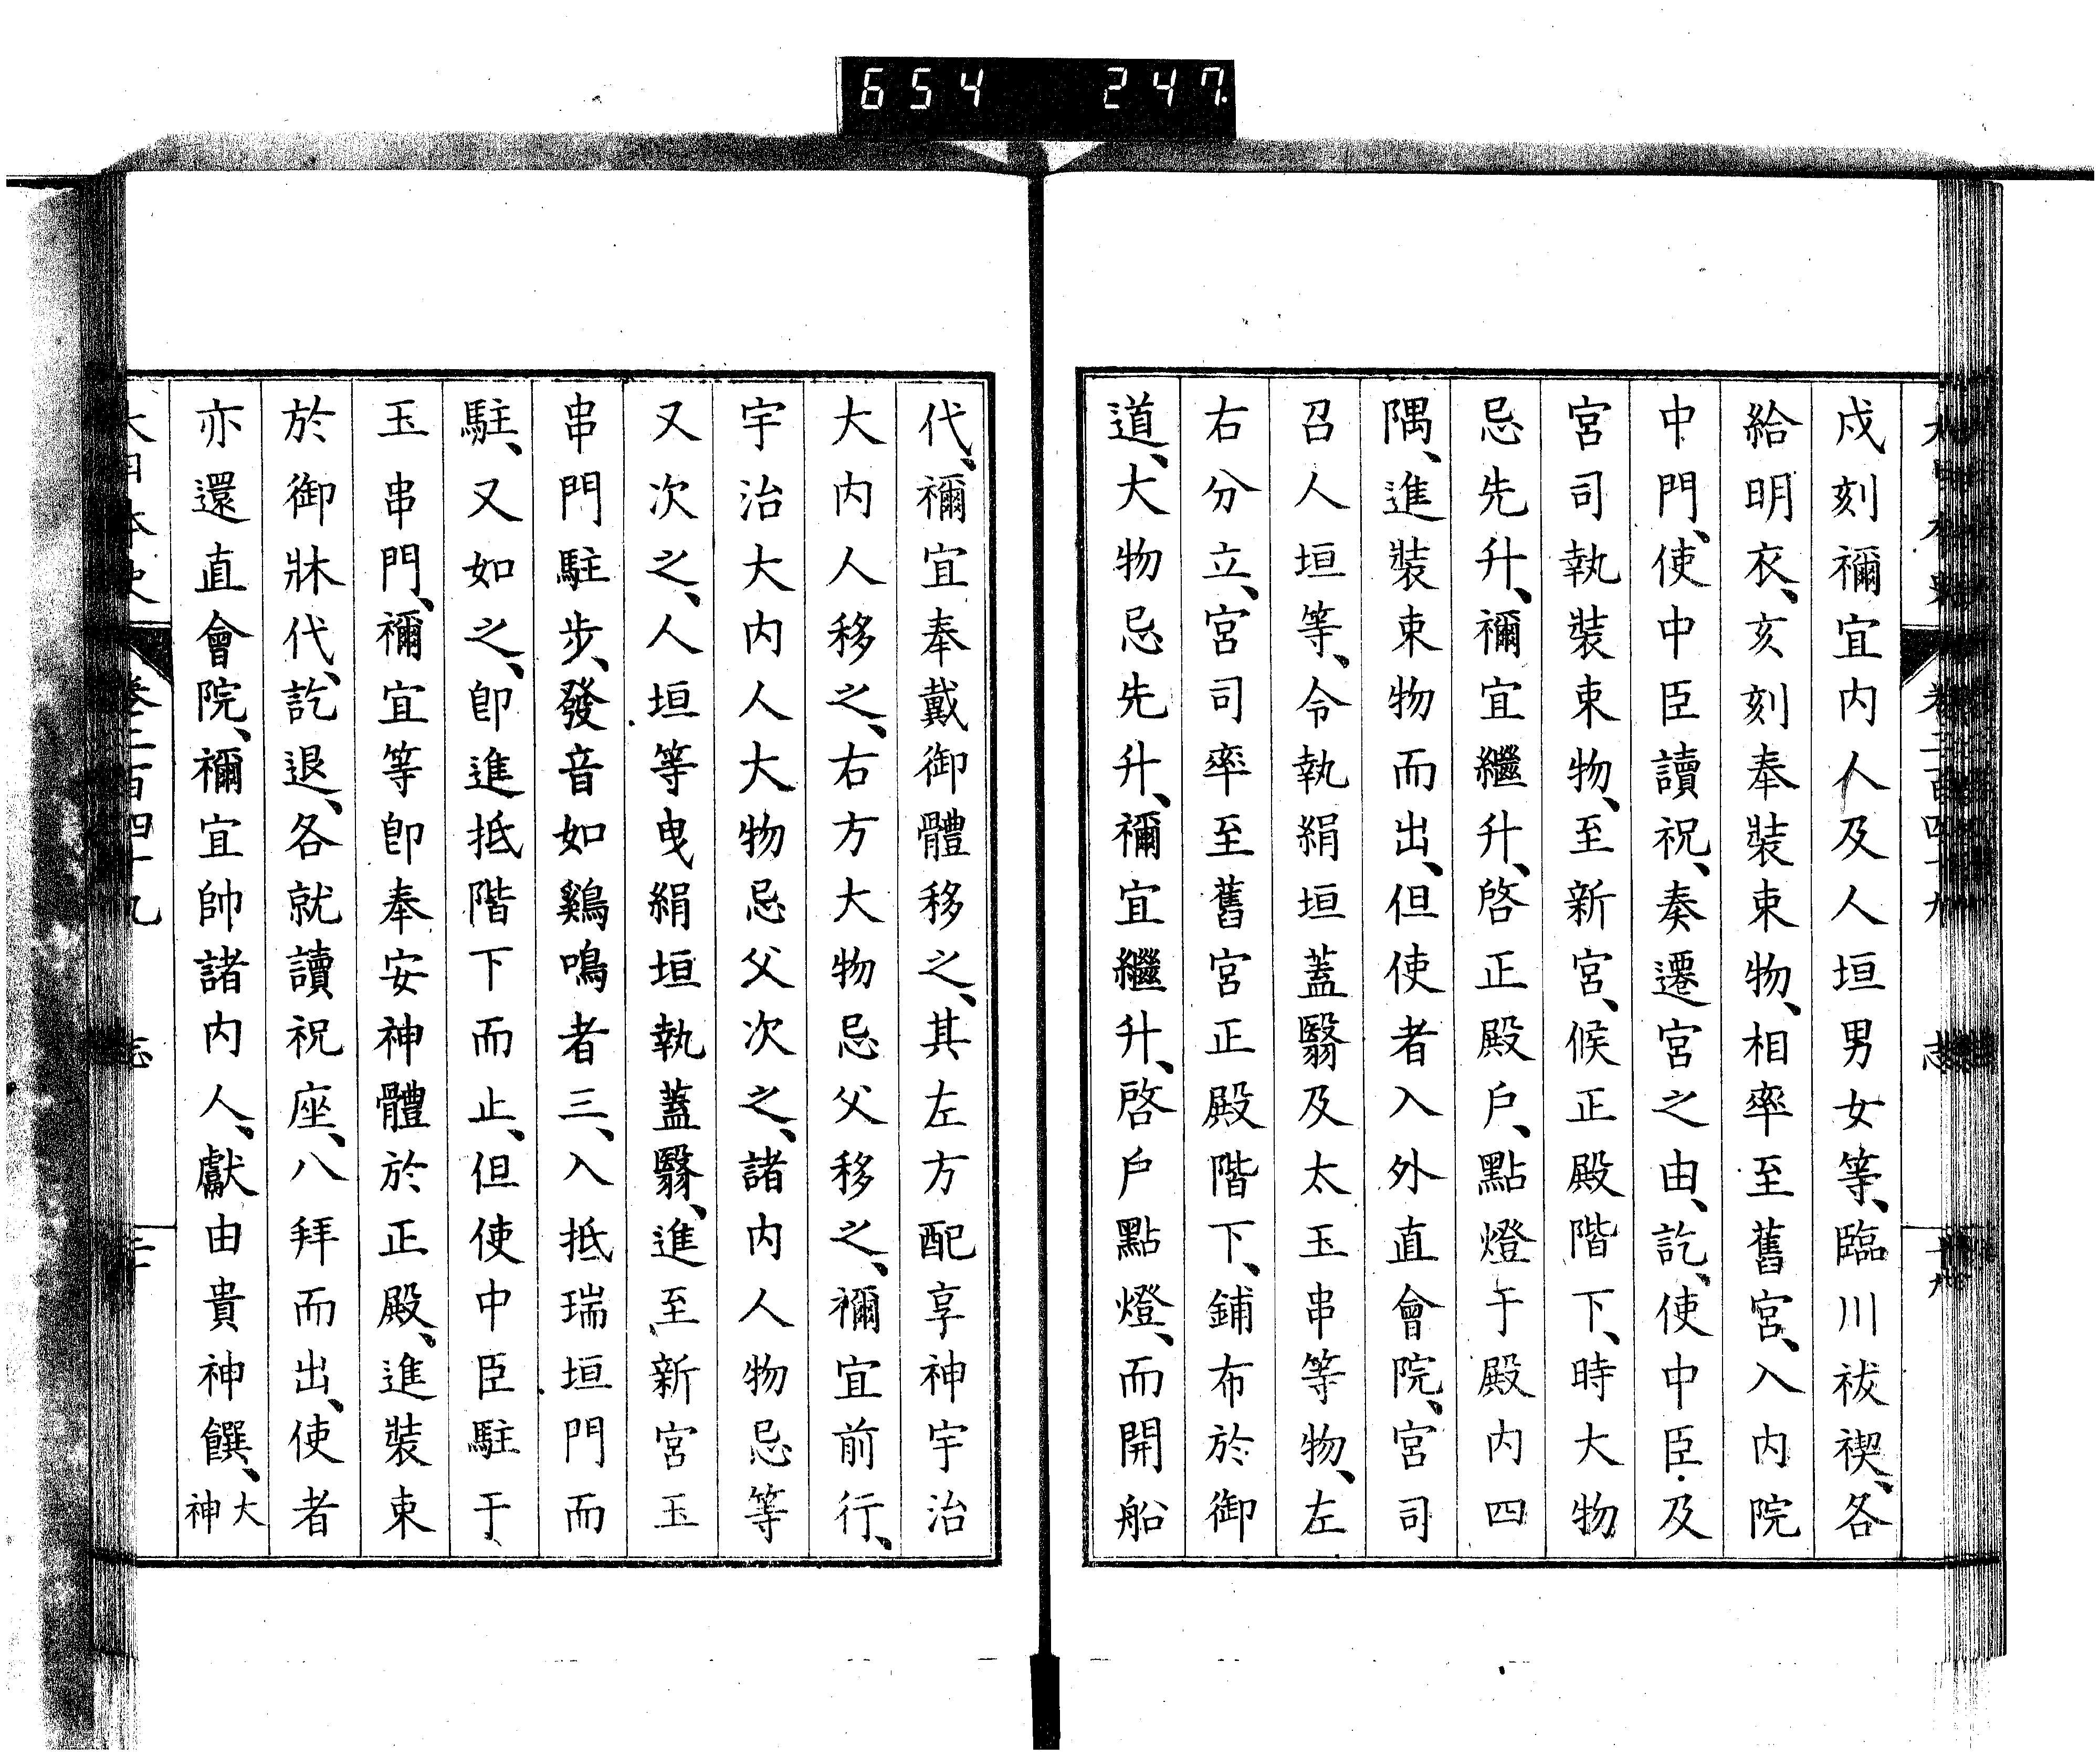 654 247
戌刻禰宜内人及人垣男女等、臨川祓禊、各
給明衣、亥刻奉裝束物、相率至舊宮、入内院
中門、使中臣讀祝、奏遷宮之由、訖、使中臣及
宮司執裝束物、至新宮、候正殿階下、時大物
忌先升、禰宜繼升、啓正殿戶、點燈于殿内四
隅、進裝束物而出、但使者入外直會院、宮司
召人垣等、令執絹垣蓋翳及太玉串等物、左
右分立、宮司率至舊宮正殿階下、鋪布於御
道、大物忌先升、禰宜繼升、啓戶點燈、而開船
代、禰宜奉戴御體移之、其左方配享神宇治
大内人移之、右方大物忌父移之、禰宜前行、
宇治大内人大物忌父次之、諸内人物忌等
又次之、人垣等曳絹垣執蓋翳、進至新宮玉
串門駐步、發音如鷄鳴者三、入抵瑞垣門而
駐、又如之、卽進抵階下而止、但使中臣駐于
玉串門、禰宜等卽奉安神體於正殿、進裝束
於御牀代、訖退、各就讀祝座、八拜而出、使者
亦還直會院、禰宜帥諸内人、獻由貴神饌、大
神
大日本史 卷二百四十九 志